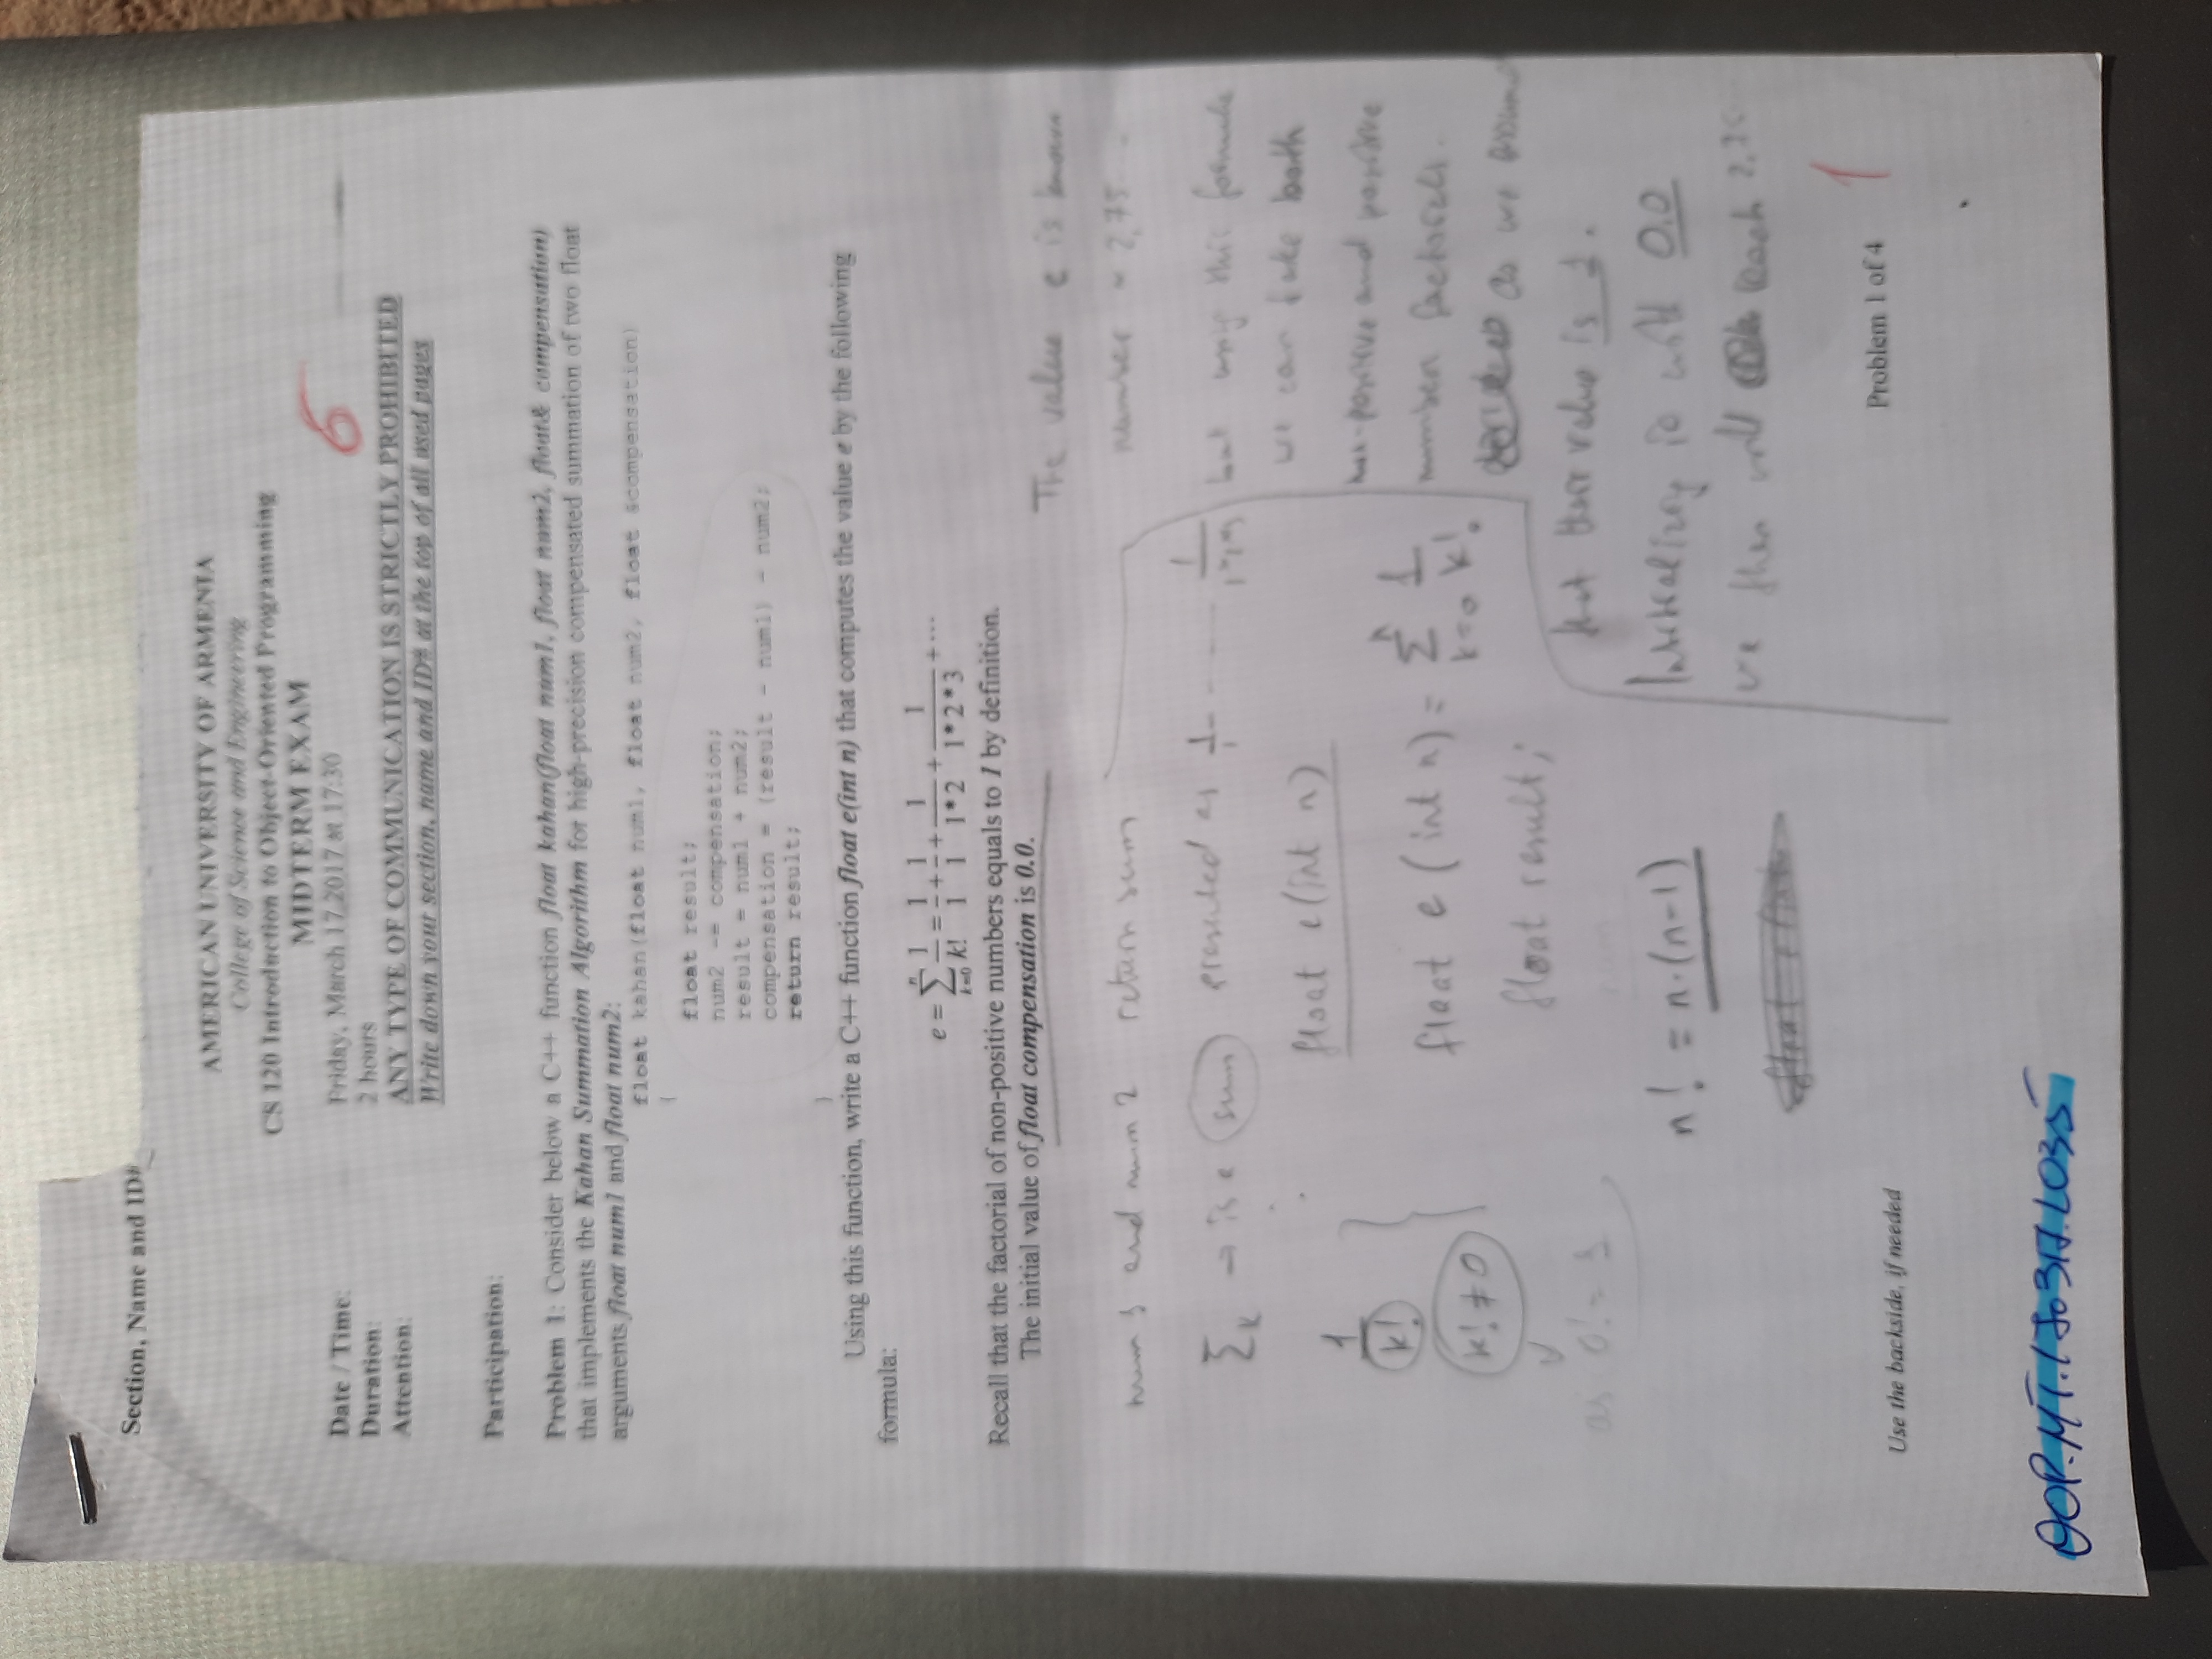 Section, Name and ID#
AMERICAN UNIVERSITY OF ARMENIA
College of Science and Engineering
CS 120 Introduction to Object-Oriented Programming
MIDTERM EXAM
6
Date / Time:
Friday, March 17 2017 at 17:30
Duration:
2 hours
Attention:
ANY TYPE OF COMMUNICATION IS STRICTLY PROHIBITED
Write down your section, name and ID# at the top of all used pages
Participation:
Problem 1: Consider below a C++ function float kahan(float num1, float num2, float& compensation)
that implements the Kahan Summation Algorithm for high-precision compensated summation of two float
arguments float num1 and float num2:
float kahan(float num1, float num2, float &compensation)
{
float result;
num2 -= compensation;
result = num1 + num2;
compensation = (result - num1) - num2;
return result;
}
Using this function, write a C++ function float e(int n) that computes the value e by the following
formula:
e = ∑_{k=0}^{n} 1/k! = 1/1 + 1/1 + 1/(1*2) + 1/(1*2*3) + ···
Recall that the factorial of non-positive numbers equals to 1 by definition.
The initial value of float compensation is 0.0.
num 1 and num 2 return sum
∑k → is a sum presented as 1/1 - - - - - 1/(1*2*3)
float e(int n)
1/k!
k! ≠ 0
as 0! = 1
float e (int n) = ∑_{k=0}^{n} 1/k!
float result;
n! = n·(n-1)
The value e is known
number ≈ 2,75...
but using this formula
we can take both
non-positive and positive
number factorials.
as we assume
that their value is 1.
Initializing is with 0.0
we then will reach 2,75
Use the backside, if needed
Problem 1 of 4
1
OOP.MT.170317.L035